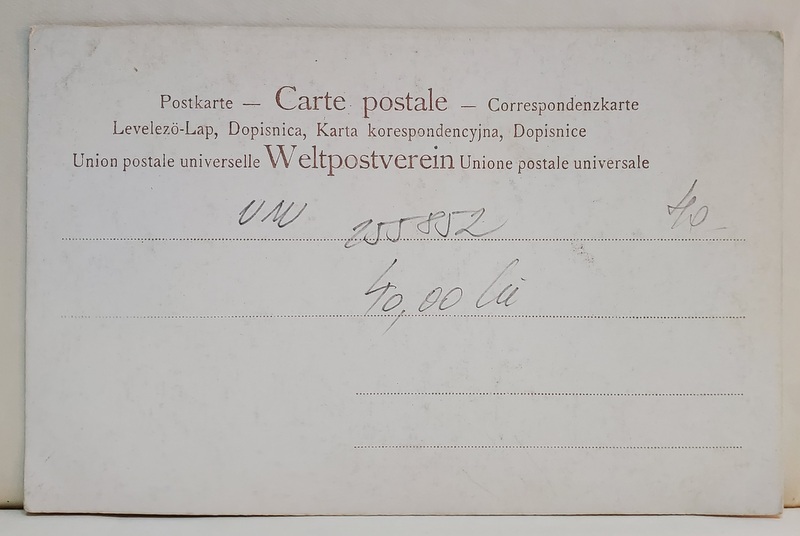 Postkarte — Carte postale — Correspondenzkarte
Levelezö-Lap, Dopisnica, Karta korespondencyjna, Dopisnice
Union postale universelle Weltpostverein Unione postale universale
255852 40
40,00 lei